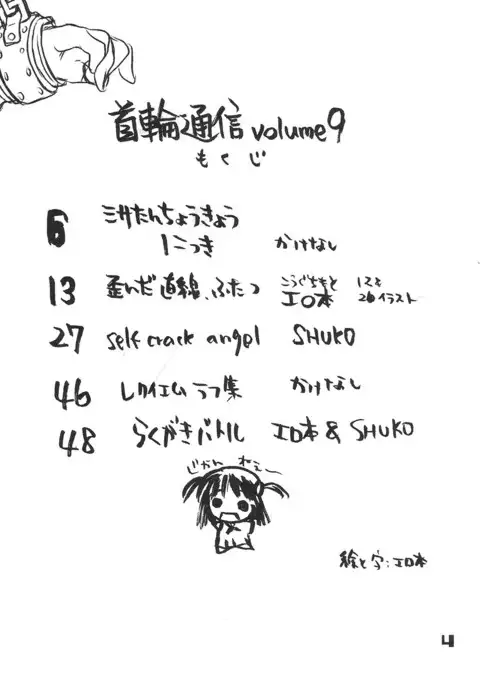 首輪通信 volume9
もくじ
6 ミサたんちょうきょう
にっき かけなし
13 歪んだ直線、ふたつ こうぐちもと 1と2
エロ本 2bイラスト
27 self crack angel SHUKO
46 レクイエムラフ集 かけなし
48 らくがきバトル エロ本 & SHUKO
じかんねぇー
絵と字:エロ本
4